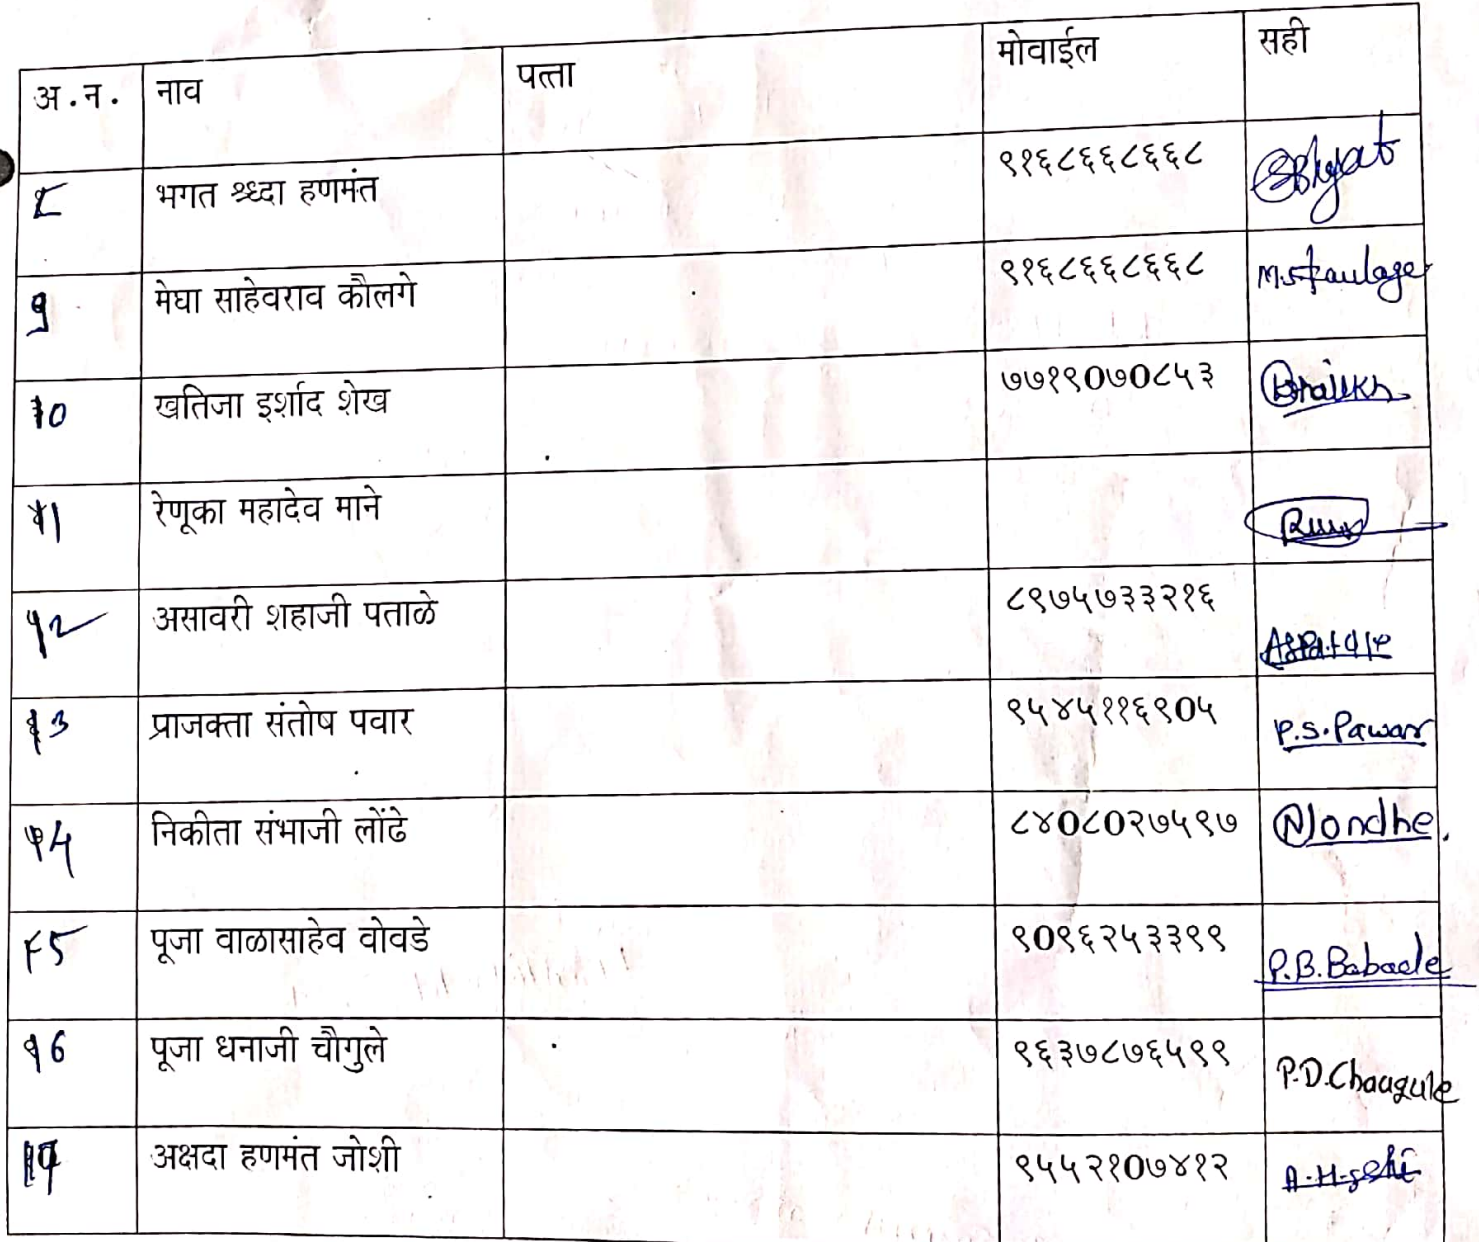 अ.न. नाव पत्ता मोवाईल सही
८ भगत श्र्ध्दा हणमंत ९१६८६६८६६८
9 मेघा साहेवराव कौलगे ९१६८६६८६६८ M.S.Kaulage
10 खतिजा इर्शाद शेख ७७१९०७०८५३ Shaikh
11 रेणूका महादेव माने
12 असावरी शहाजी पताळे ८९७५७३३२१६ A.S.Patale
13 प्राजक्ता संतोष पवार ९५४५११६९०५ P.S.Pawar
14 निकीता संभाजी लोंढे ८४०८०२७५९७ Nlondhe.
15 पूजा वाळासाहेव वोवडे ९०९६२५३३९९ P.B.Babade
16 पूजा धनाजी चौगुले ९६३७८७६५९९ P.D.Chaugule
17 अक्षदा हणमंत जोशी ९५५२१०७४१२